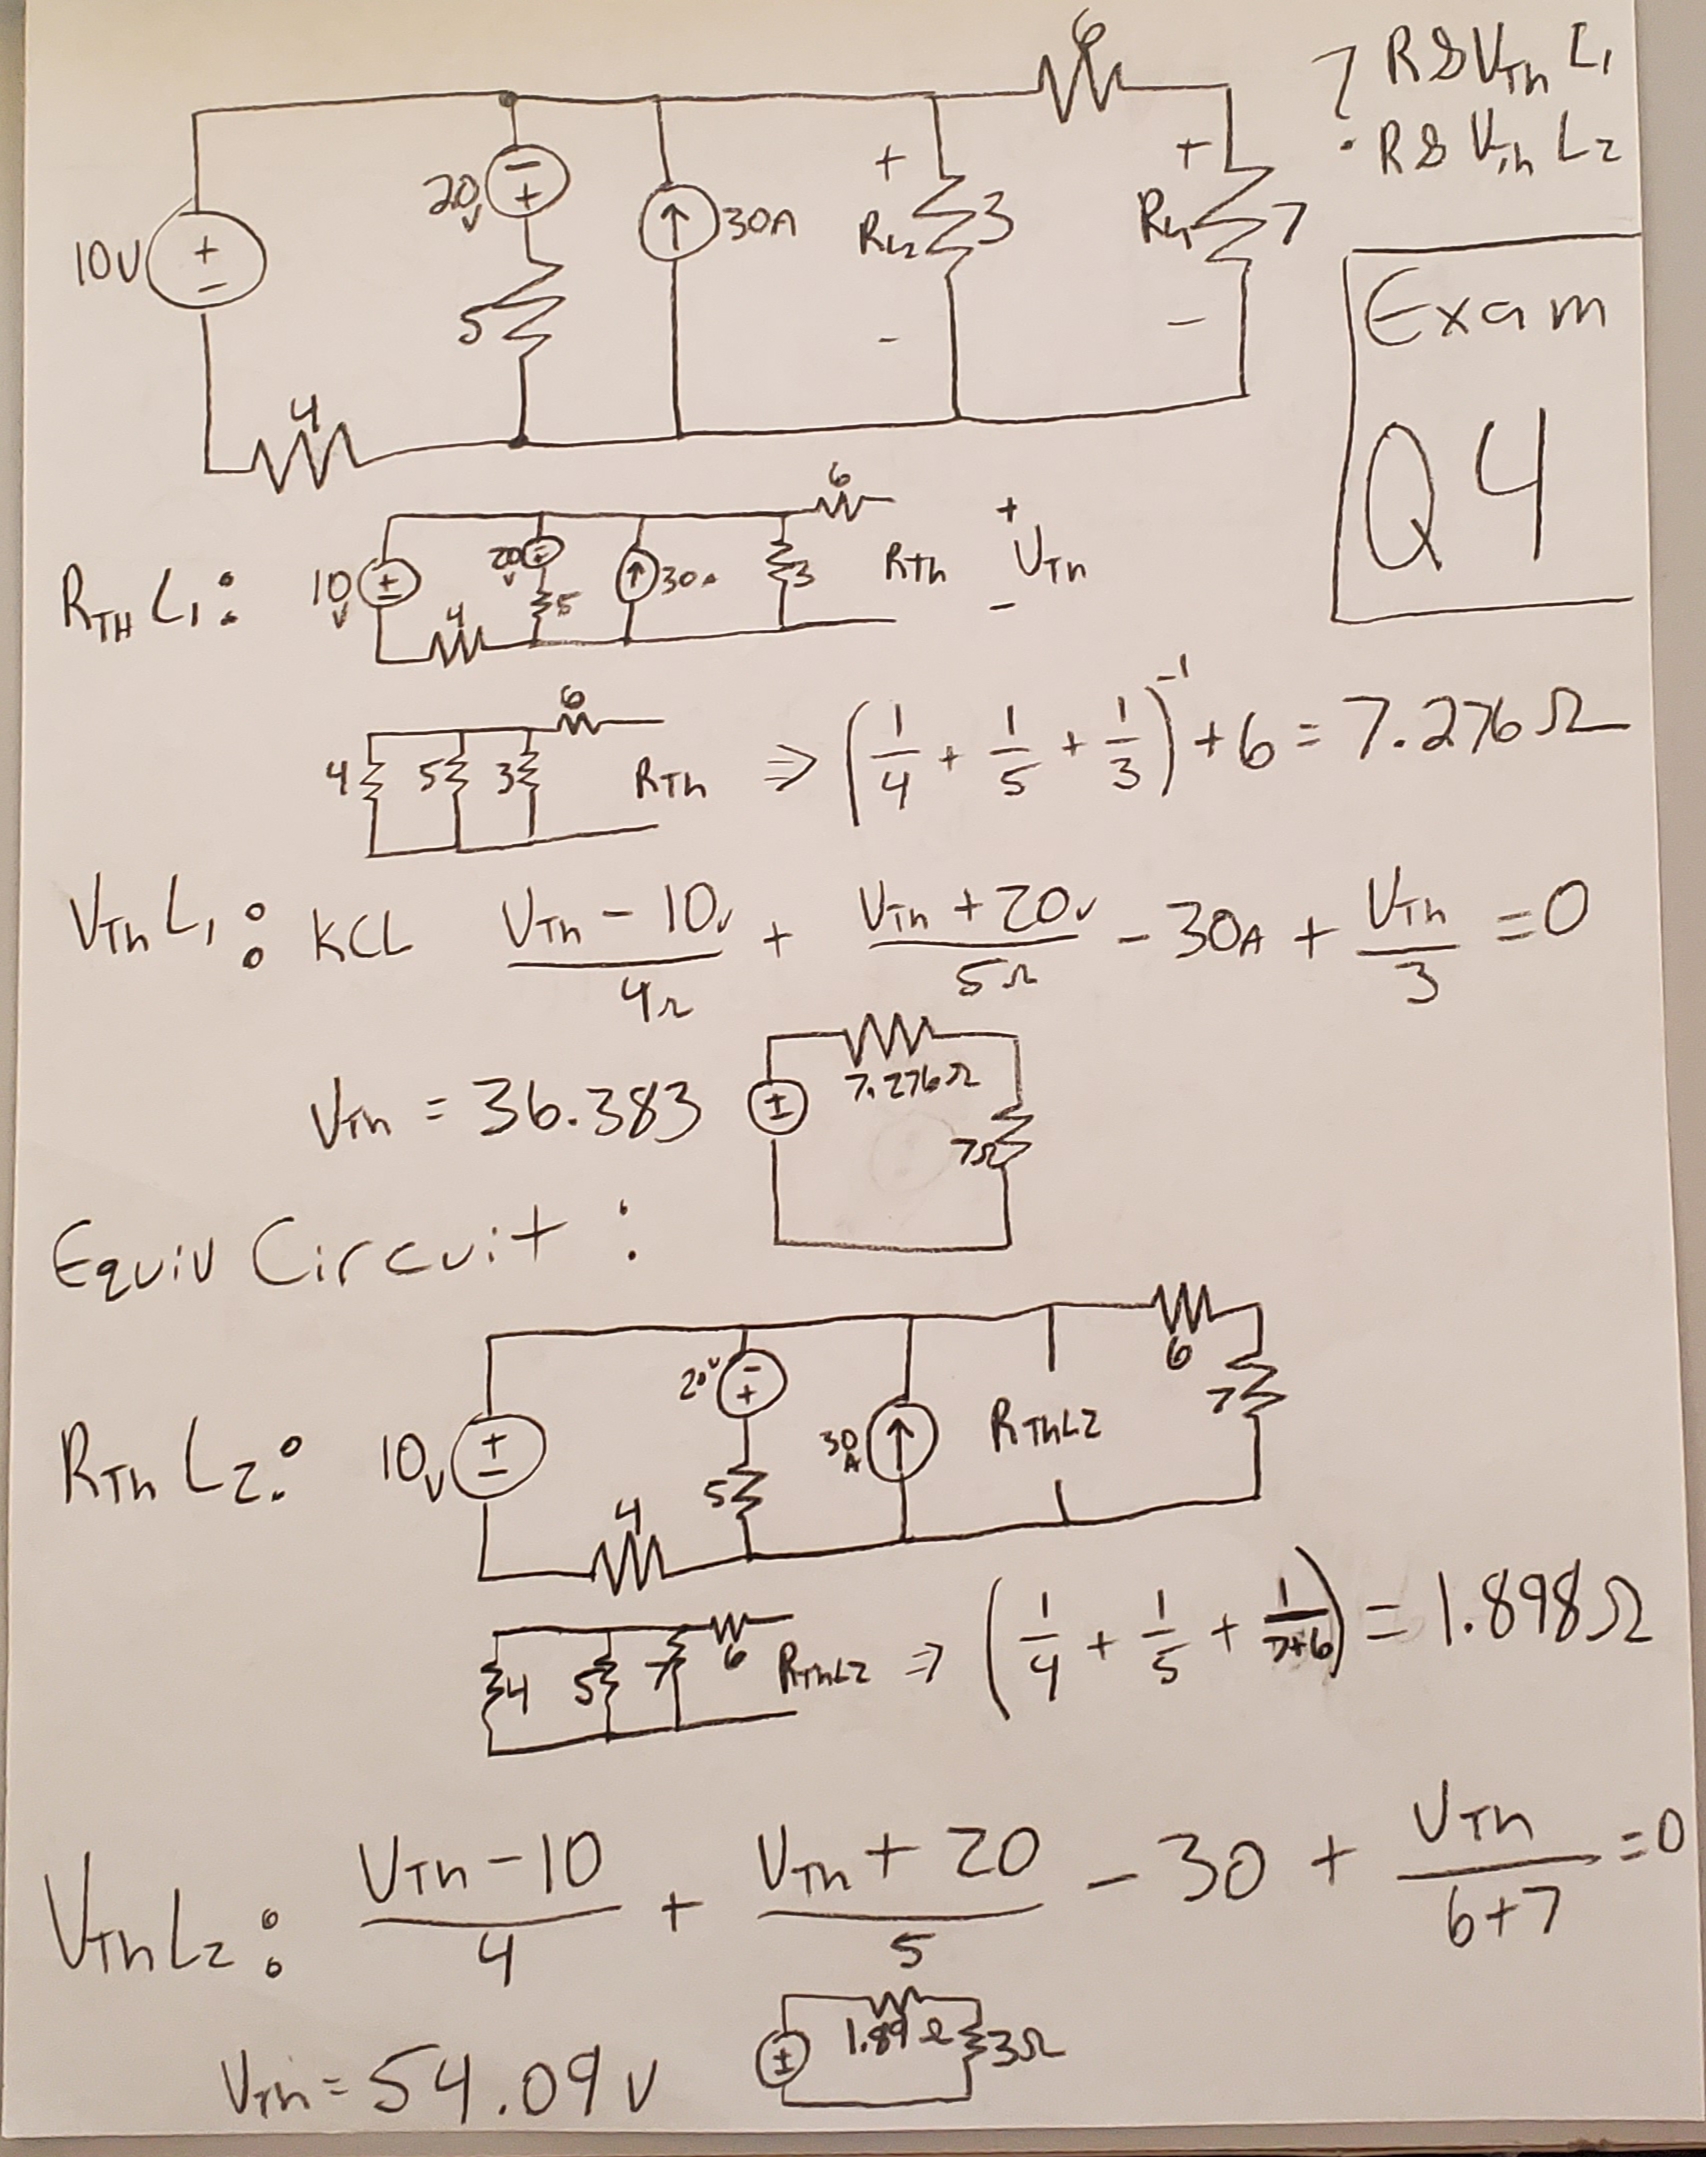 ? R&VTh L1
R&VTh L2
6
10V
+
-
20V
-
+
5
4
30A
+
RL2
3
-
+
RL1
7
-
Exam
Q4
RTH L1: 10V + - 4 20V 5 30A 3 6 RTh + VTh -
4 5 3 6 RTh ⇒ (1/4 + 1/5 + 1/3)^-1 + 6 = 7.276Ω
VTh L1: KCL (VTh - 10V)/4Ω + (VTh + 20V)/5Ω - 30A + VTh/3 = 0
VTh = 36.383 ± 7.276Ω 7Ω
Equiv Circuit:
RTh L2: 10V + - 4 20V - + 5 30A RThL2 6 7
4 5 7 6 RThL2 ⇒ (1/4 + 1/5 + 1/(7+6)) = 1.898Ω
VTh L2: (VTh - 10)/4 + (VTh + 20)/5 - 30 + VTh/(6+7) = 0
VTh = 54.09V ± 1.89Ω 3Ω